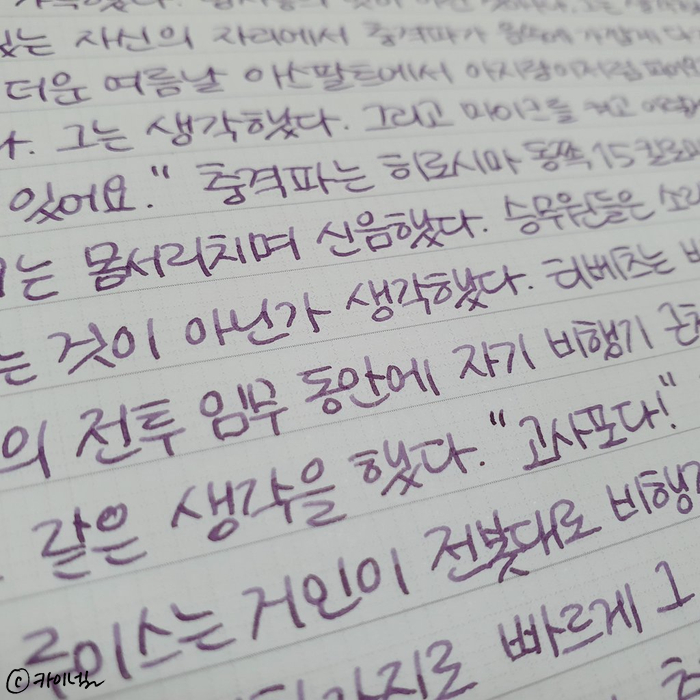 있는 자신의 자리에서 충격파가
더운 여름날 아스팔트에서 아지랑이처럼
다. 그는 생각했다. 그리고 마이크를 켜고
있어요." 충격파는 히로시마 동쪽 15킬로미
는 몸서리치며 신음했다. 승무원들은 소리
는 것이 아닌가 생각했다. 티베츠는
의 전투 임무 동안에 자기 비행기 근처
같은 생각을 했다. "고사포다!"
루이스는 거인이 전봇대로 비행기
까지로 빠르게 그
ⓒ카이김